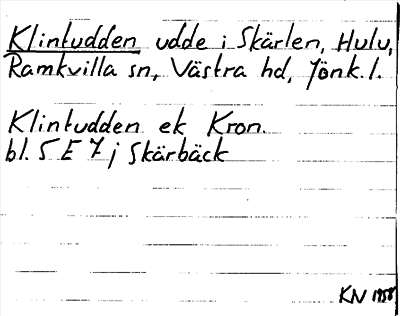 Klintudden udde i Skärlen, Hulu,
Ramkvilla sn, Västra hd, Jönk. l.
Klintudden ek Kron.
bl. 5 E 7 j Skärbäck
KN 1958